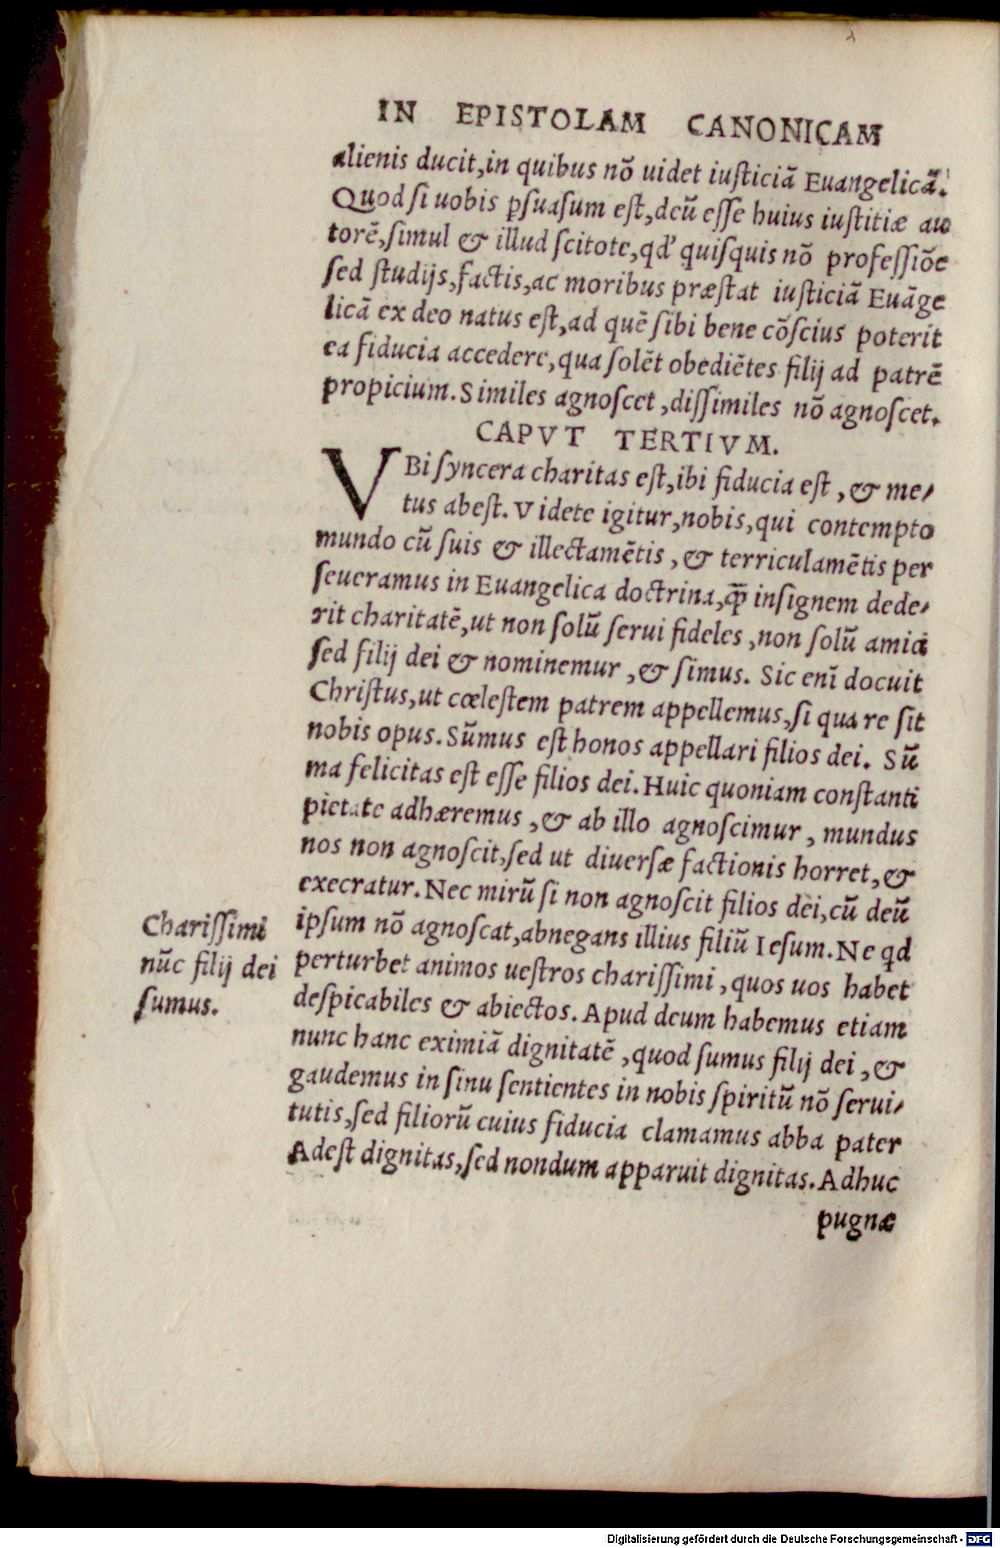 IN EPISTOLAM CANONICAM
alienis ducit, in quibus nō uidet iusticiā Euangelicā.
Quod si uobis ꝑsuasum est, deū esse huius iustitiæ au
torē, simul & illud scitote, qđ quisquis nō professiōe
sed studijs, factis, ac moribus præstat iusticiā Euāge
licā ex deo natus est, ad quē sibi bene cōscius poterit
ea fiducia accedere, qua solēt obediētes filij ad patrē
propicium. Similes agnoscet, dissimiles nō agnoscet.
CAPVT TERTIVM.
VBi syncera charitas est, ibi fiducia est, & me-
tus abest. Videte igitur, nobis, qui contempto
mundo cū suis & illectamētis, & terriculamētis per
seueramus in Euangelica doctrina, q̄ꝫ insignem dede-
rit charitatē, ut non solū serui fideles, non solū amici
sed filij dei & nominemur, & simus. Sic enī docuit
Christus, ut cœlestem patrem appellemus, si qua re sit
nobis opus. Sūmus est honos appellari filios dei. Sū
ma felicitas est esse filios dei. Huic quoniam constanti
pietate adhæremus, & ab illo agnoscimur, mundus
nos non agnoscit, sed ut diuersæ factionis horret, &
execratur. Nec mirū si non agnoscit filios dei, cū deū
ipsum nō agnoscat, abnegans illius filiū Iesum. Ne qd
perturbet animos uestros charissimi, quos uos habet
despicabiles & abiectos. Apud deum habemus etiam
nunc hanc eximiā dignitatē, quod sumus filij dei, &
gaudemus in sinu sentientes in nobis spiritū nō serui-
tutis, sed filiorū cuius fiducia clamamus abba pater
Adest dignitas, sed nondum apparuit dignitas. Adhuc
pugnæ
Charissimi
nūc filij dei
sumus.
Digitalisierung gefördert durch die Deutsche Forschungsgemeinschaft - DFG